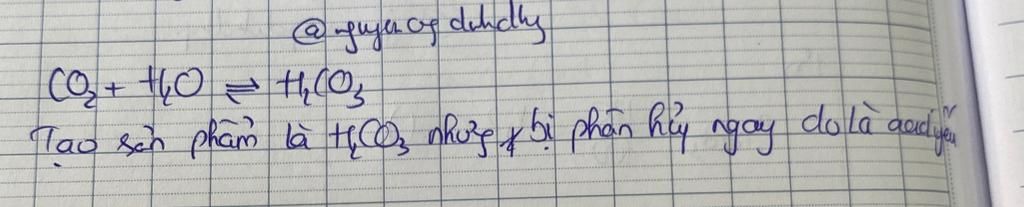 CO₂ + H₂O ⇌ H₂CO₃
Tạo sản phẩm là H₂CO₃ nhưng bị phân hủy ngay do là acid yếu